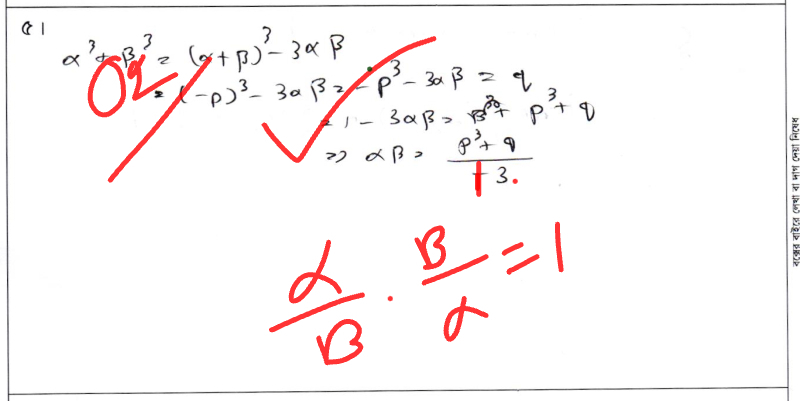 α³ + β³ = (α + β)³ - 3αβ
= (-p)³ - 3αβ = -p³ - 3αβ = q
- 3αβ = p³ + q
=> αβ = (p³ + q) / - 3
α/β . β/α = 1
বক্সের বাইরে লেখা বা দাগ দেয়া নিষেধ